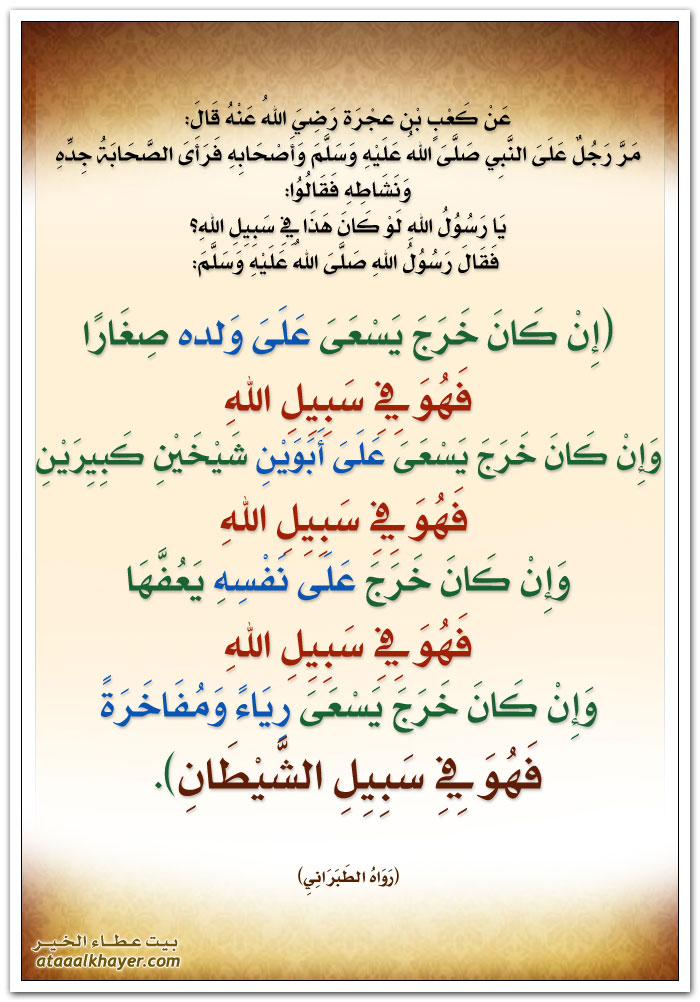 عَنْ كَعْبٍ بْنِ عجْرَة رَضِيَ اللهُ عَنْهُ قَالَ:
مَرَّ رَجُلٌ عَلَىَ النَّبِي صَلَّىَ اللهُ عَلَيْهِ وَسَلَّمَ وَأَصْحَابِهِ فَرَأَىَ الصَّحَابَةُ جِدِّهِ
وَنَشَاطِهِ فَقَالُوُا:
يَا رَسُوُلُ اللهِ لَوْ كَانَ هَذَا فِيِ سَبِيِلِ اللهِ؟
فَقَالَ رَسُوُلُ اللهِ صَلَّىَ اللهُ عَلَيْهِ وَسَلَّمَ:
(إِنْ كَانَ خَرَجَ يَسْعَىَ عَلَىَ وَلده صِغَارًا
فَهُوَ فِيِ سَبِيِلِ اللهِ
وَإِنْ كَانَ خَرَجَ يَسْعَىَ عَلَىَ أَبَوَيْنِ شَيْخَيْنِ كَبِيِرَيْنِ
فَهُوَ فِيِ سَبِيِلِ اللهِ
وَإِنْ كَانَ خَرَجَ عَلَىَ نَفْسِهِ يَعُفَّهَا
فَهُوَ فِيِ سَبِيِلِ اللهِ
وَإِنْ كَانَ خَرَجَ يَسْعَىَ رِيَاءً وَمُفَاخَرَةً
فَهُوَ فِيِ سَبِيِلِ الشَّيْطَانِ).
(رَوَاهُ الطَبَرَانِيِ)
بيت عطاء الخير
ataaalkhayer.com